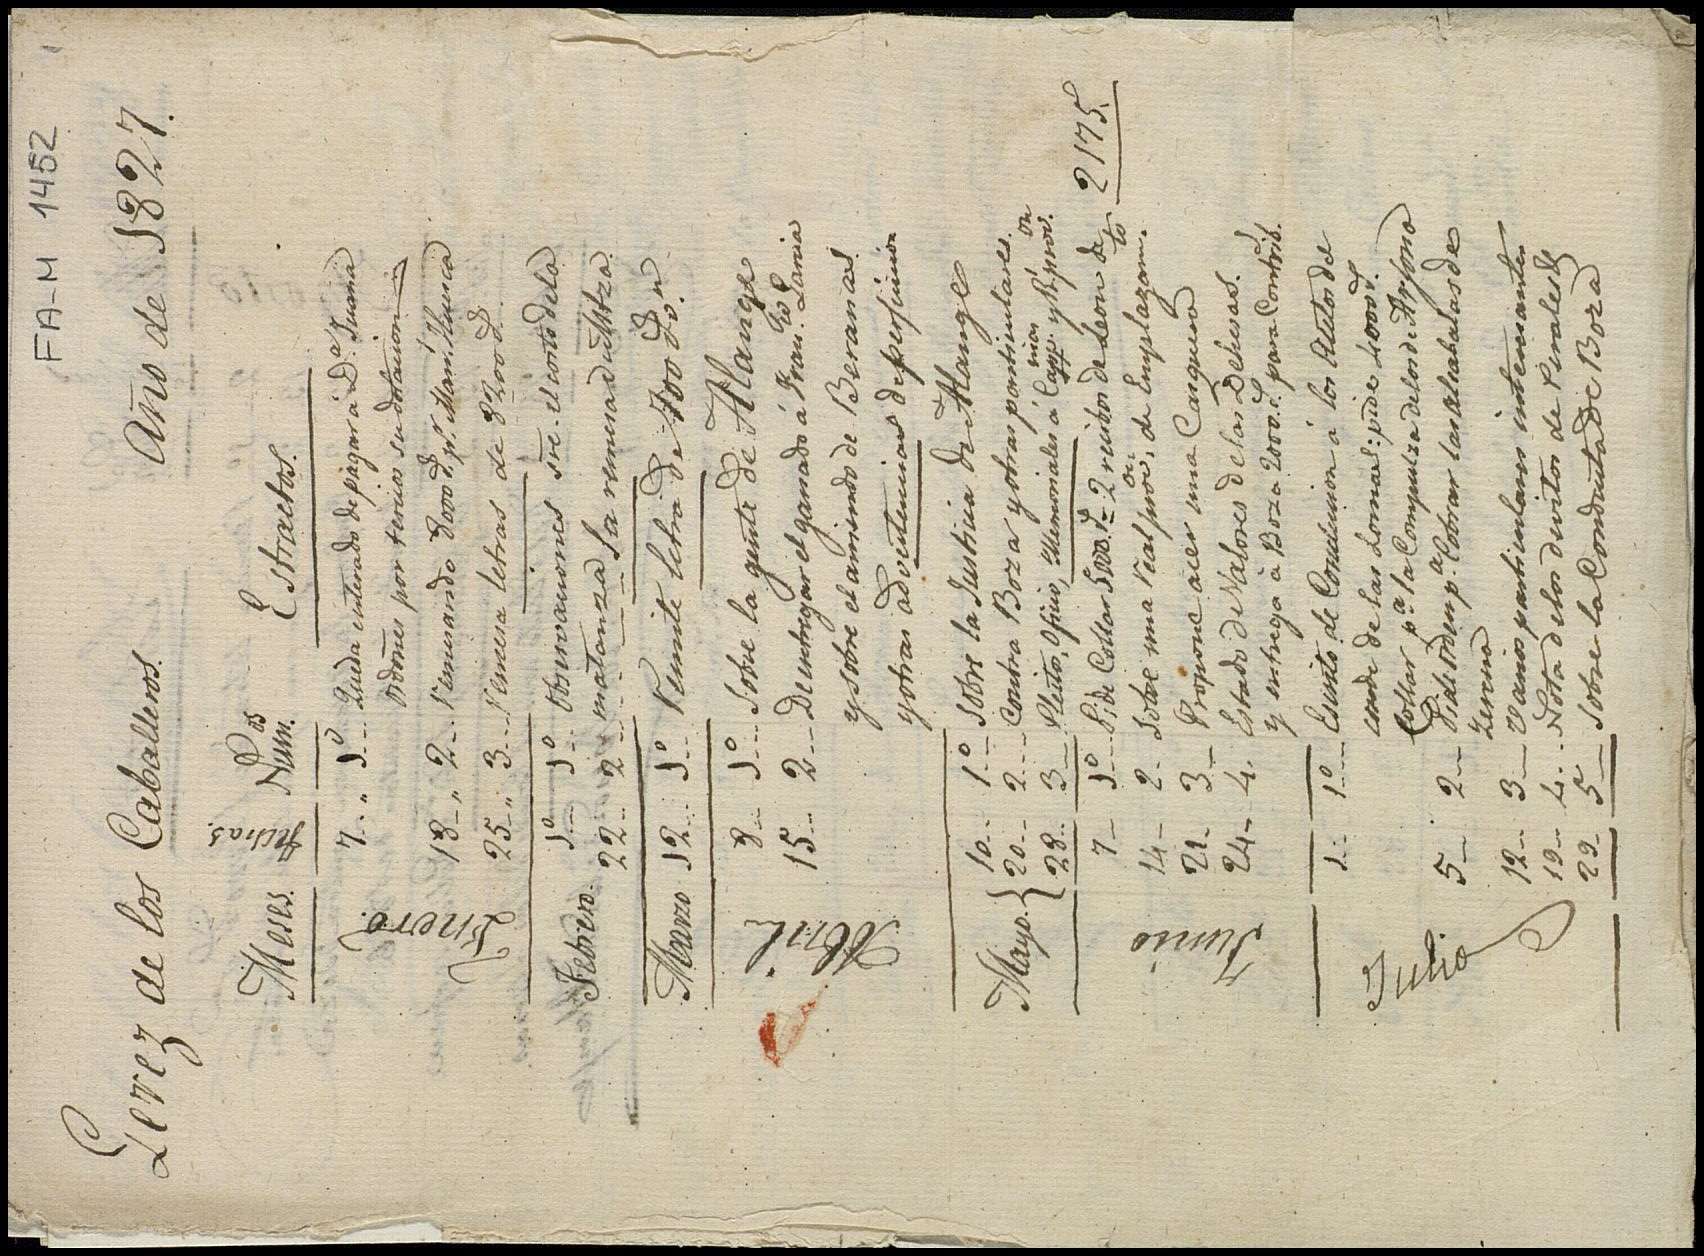 FA-M 1452
Xerez de los Caballeros. Año de 1827.
Meses. Fechas. Num.os Estractos.
Enero. 7 " 1º Queda enterado de pagar á D.ª Juana
Ordoñes por tercios su dotacion
18 " 2 Remesando 8000 r.s p.r Man.l
25 " 3 Remesa letras de 3200 r.s
Febrero. 1º 1º Observaciones sre. el corte de la
matanza
22 2 La remesa de
Marzo 12 1º Remite letra de r.s v.n
Abril 8 1º Sobre la gente de Alange
15 2 De entregar el ganado á Fran.co
y sobre el arriendo de Beranas
y otras advertencias de
Mayo. 10 1º Sobre la Justicia de Alange
20 2 Contra Boza y otras particulares.
28 3 Pleito, Oficio, Memoriales á
Junio 7 1º Pide Collar 5000 r.s = 2 recibos de Leon de 2175 r.s
14 2 Sobre una Real prov.on de Emplazam.to
21 3 Propone acer una Carguera
24 4. Estado de Valores de las Dehesas.
y entrega á Boza 2000 r.s para Contrib.on
Julio 1 1º Escrito de Comision á los Pleitos de
Collar p.ª la Compulsa de los de Arjona
5 2 Pide orden p.ª Cobrar las alcabalas de
12 3 Varios particulares interesantes
19 4 Nota de los devitos de
22 5 Sobre la Conducta de Boza